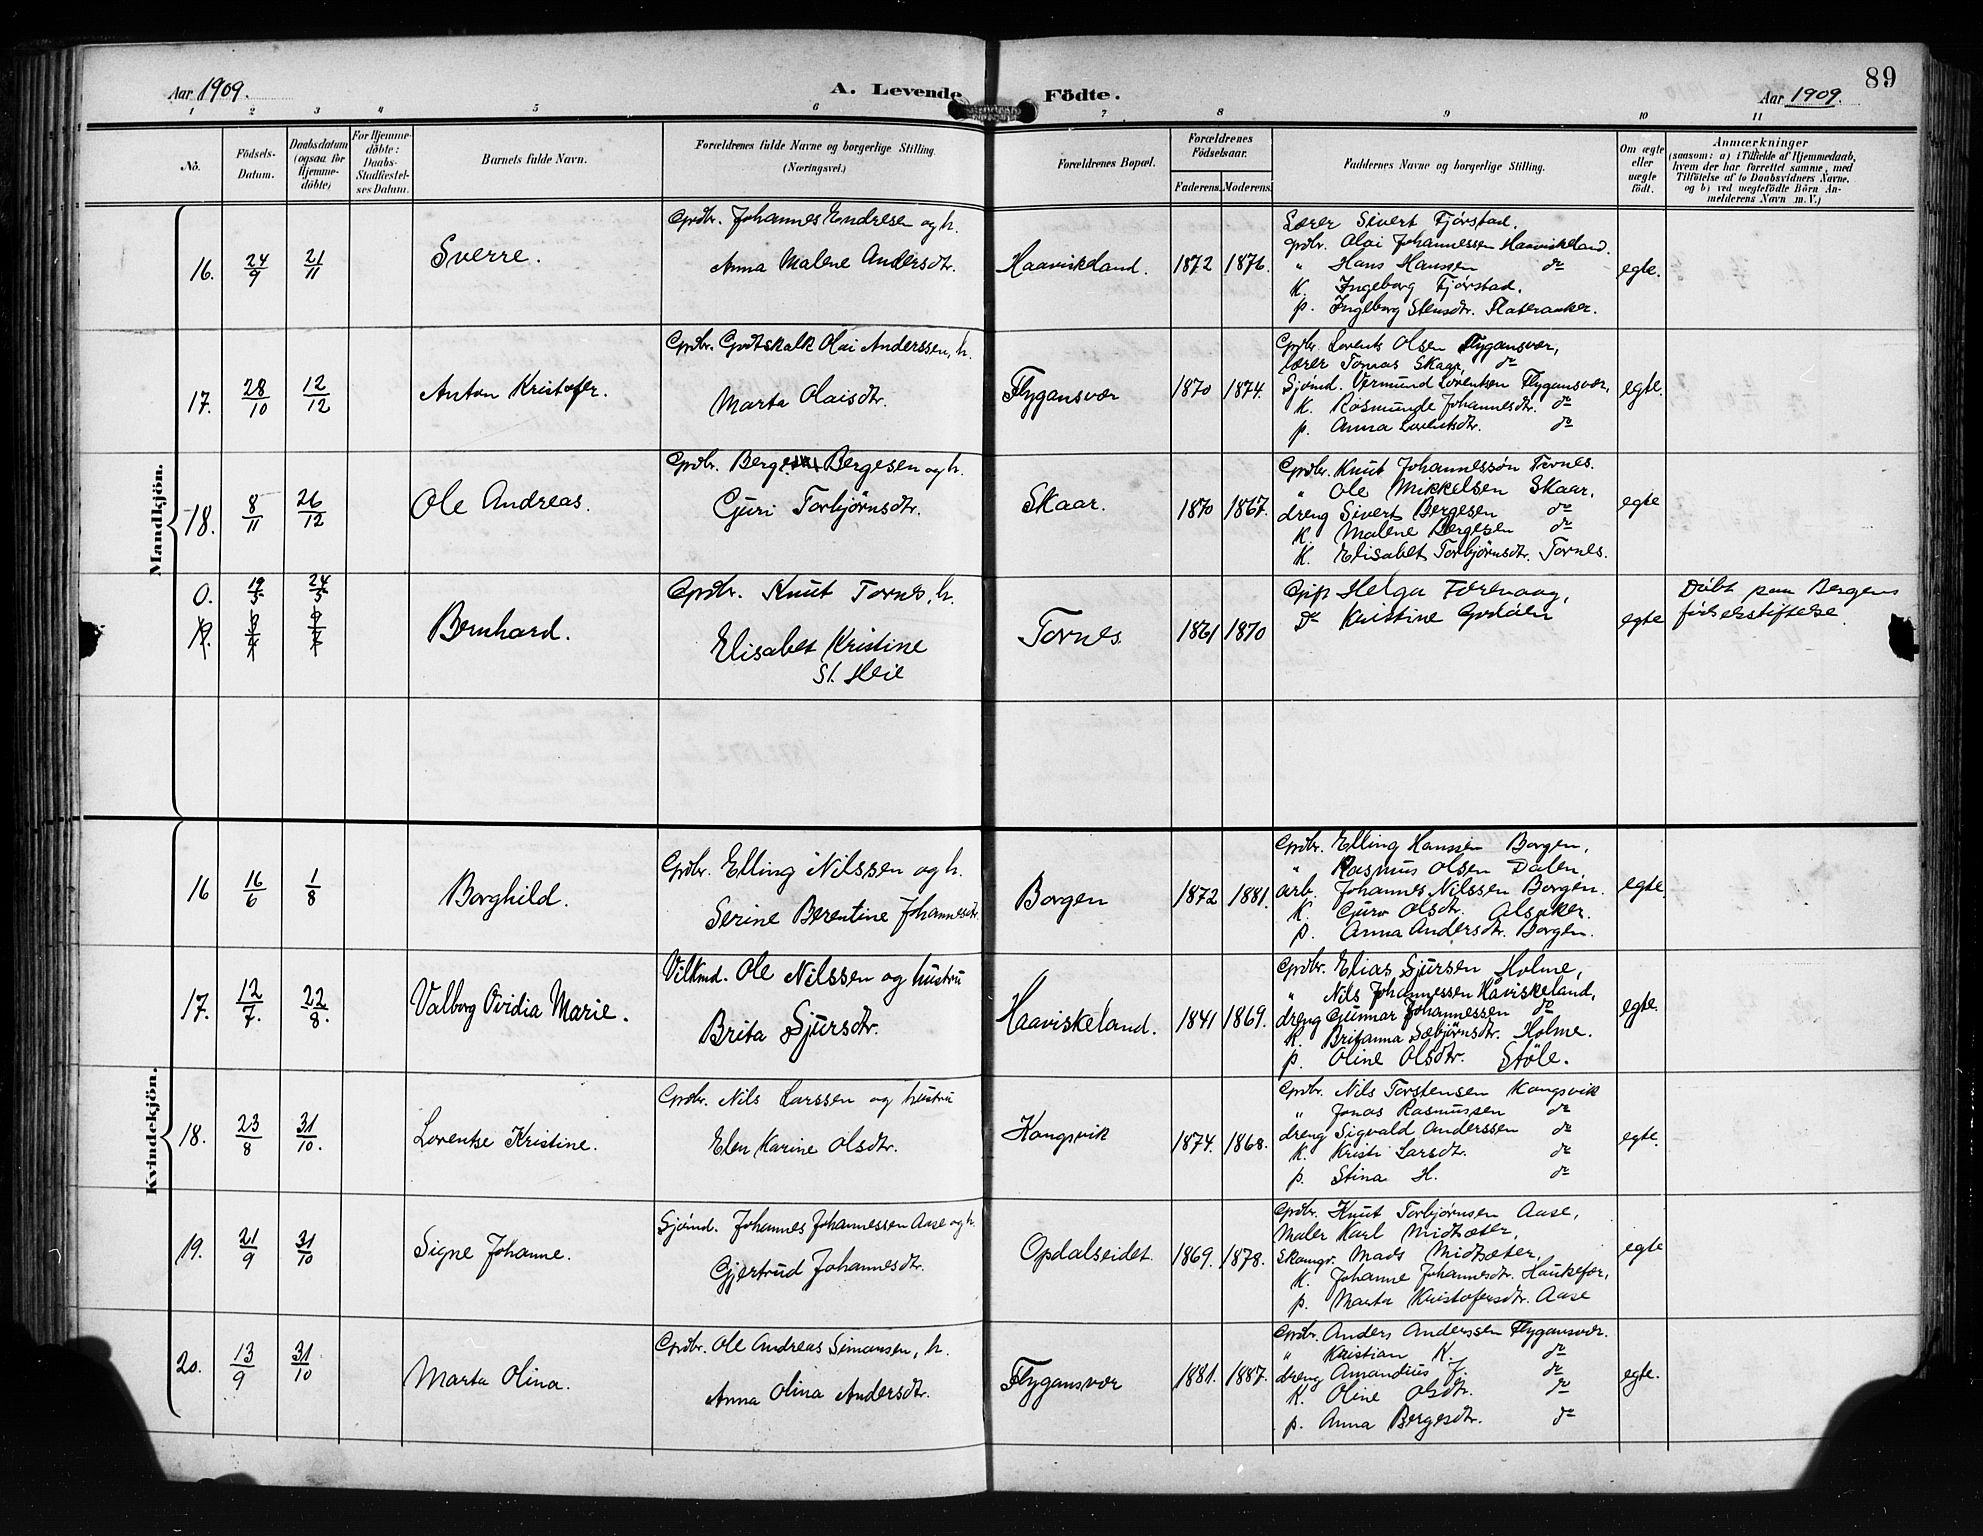 89
Aar 1909. A. Levende Födte. Aar 1909.
1 2 3 4 5 6 7 8 9 10 11
No.
Födsels-Datum.
Daabsdatum (ogsaa for Hjemme-døbte)
For Hjemme-døbte: Daabs-Stadfæstel-ses Datum.
Barnets fulde Navn.
Forældrenes fulde Navne og borgerlige Stilling.
(Næringsvei.)
Forældrenes Bopæl.
Forældrenes Fødselsaar.
Faderens. Moderens.
Faddernes Navne og borgerlige Stilling.
Om ægte eller uægte født.
Anmærkninger
(saasom: a) i Tilfælde af Hjemmedaab,
hvem der har forrettet samme, med
Tilføielse af to Daabsvidners Navne.
og b) ved uægtefødte Börn An-
melderens Navn m. V.)
Mandkjön.
16. 24/9 21/11 Sverre.
Grdbr. Johannes Endresen og h.
Anna Malene Andersdtr.
Haaviskeland. 1872 1876.
Lærer Sivert Fjørstad.
Grdbr. Olai Johannessen Haaviskeland.
" Hans Hanssen do
K. Ingeborg Fjørstad.
p. Ingeborg Stensdtr.
egte.
17. 28/10 12/12 Anton Kristofer.
Grdbr. Gotskalk Olai Anderssen, h.
Marta Olaisdtr.
Flygansvær 1870 1874.
Grdbr. Lorents Olsen Flygansvær,
lærer Tomas Skaar, do
Sjömd. Vermund Lorentsen Flygansvær,
K. Rasmunde Johannesdtr. do
p. Anna Lorentsdtr. do
egte.
18. 8/11 26/12 Ole Andreas.
Grdbr. Berge Bergesen og h.
Guri Torbjørnsdtr.
Skaar. 1870 1867.
Grdbr. Knut Johannessøn Tornes.
" Ole Mikkelsen Skaar,
dreng Sivert Bergesen do
K. Malene Bergesen do
K. Elisabet Torbjørnsdtr. Tornes.
egte
0. 19/3 24/3 Bernhard.
Grdbr. Knut Tornes, h.
Elisabet Kristine
St. Heie
Tornes 1861 1870
Gift Helga
Do Kristine
egte
Döbt paa Bergens
fødselsstiftelse.
Kvindekjön.
16 16/6 1/8 Borghild.
Grdbr. Elling Nilssen og h.
Serine Berentine Johannesdtr.
Borgen 1872 1881.
Grdbr. Elling Hanssen Borgen,
" Rasmus Olsen Dalen,
arb. Johannes Nilssen Borgen.
K. Guro Olsdtr. Alsaker.
p. Anna Andersdtr. Borgen.
egte
17. 12/7. 22/8. Valborg Ovidia Marie.
Vilkmd. Ole Nilssen og hustru
Brita Sjursdtr.
Haaviskeland. 1841 1869.
Grdbr. Elias Sjursen Holme,
" Nils Johannessen Håviskeland,
dreng Gunnar Johannessen do
K. Britanna Sæbjørnsdtr. Holme.
p. Oline Olsdtr. Støle.
egte.
18. 23/8 31/10. Lorentse Kristine.
Grdbr. Nils Larssen og hustru
Elen Karine Olsdtr.
Kongsvik 1874. 1868.
Grdbr. Nils Torstensen Kongsvik
" Jonas Rasmussen do
dreng Sigvald Anderssen do
K. Kristi Larsdtr. do
p. Stina H. do
egte.
19. 21/9 31/10 Signe Johanne.
Sjömd. Johannes Johannessen Aase og h.
Gjertrud Johannesdtr.
Opdalseidet. 1869. 1878.
Grdbr. Knut Torbjørnsen Aase,
Maler Karl Midtsæter,
Skomgr. Mads Midtsæter,
K. Johanne Johannesdtr. Haukefær,
p. Marta Kristofersdtr. Aase
egte
20. 13/9 31/10 Marta Olina.
Grdbr. Ole Andreas Simonsen, h.
Anna Olina Andersdtr.
Flygansvær 1881. 1887.
Grdbr. Anders Anderssen Flygansvær.
" Kristian K. do
dreng Amandus J. do
K. Oline Olsdtr. do
p. Anna Bergesdtr. do
egte.